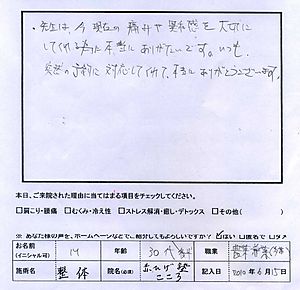 ・先生は今現在の痛みや異和感を大切に
してくれる為に本当にありがたいです。いつも
突然の予約に対応してくれて本当にありがとうございます。
本日、ご来院された理由に当てはまる項目をチェックしてください。
□肩こり・腰痛 □むくみ・冷え性 □ストレス解消・癒し・デトックス □その他( )
※ あなた様の声を、ホームページなどでご紹介してもよろしいですか？ はい □匿名で □ダメ
お名前 (イニシャル可) 年齢 30代 職業
施術名 整体 院名(必須) こころ 記入日 2010年6月15日